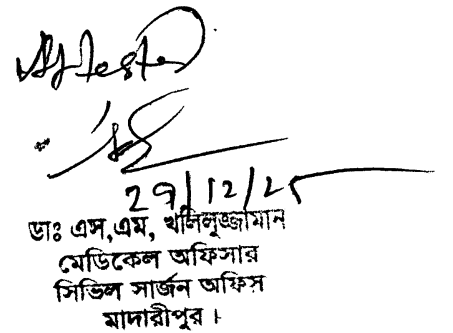 Attested
29/12/25
ডাঃ এস,এম, খলিলুজ্জামান
মেডিকেল অফিসার
সিভিল সার্জন অফিস
মাদারীপুর।